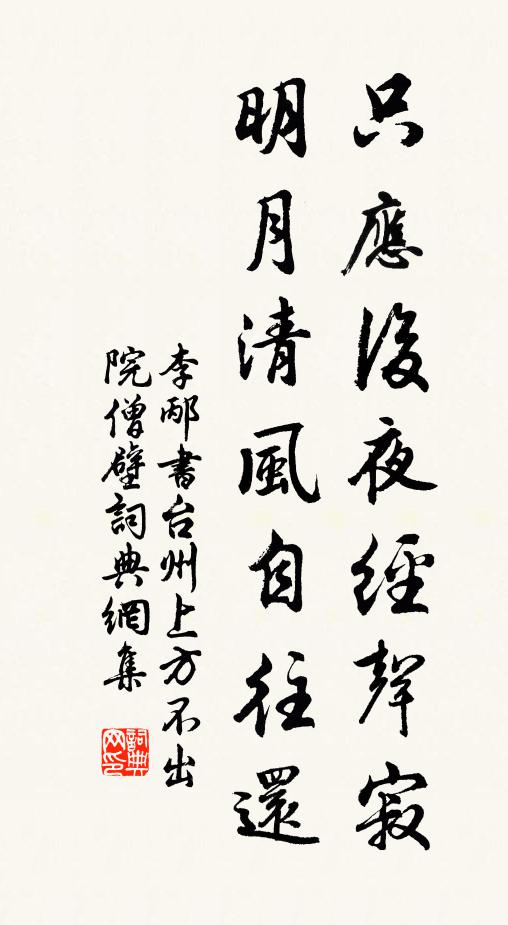 只應後夜經聲寂
明月清風自往還
李邴書台州上方不出
院僧壁詞典網集
詞典
网印